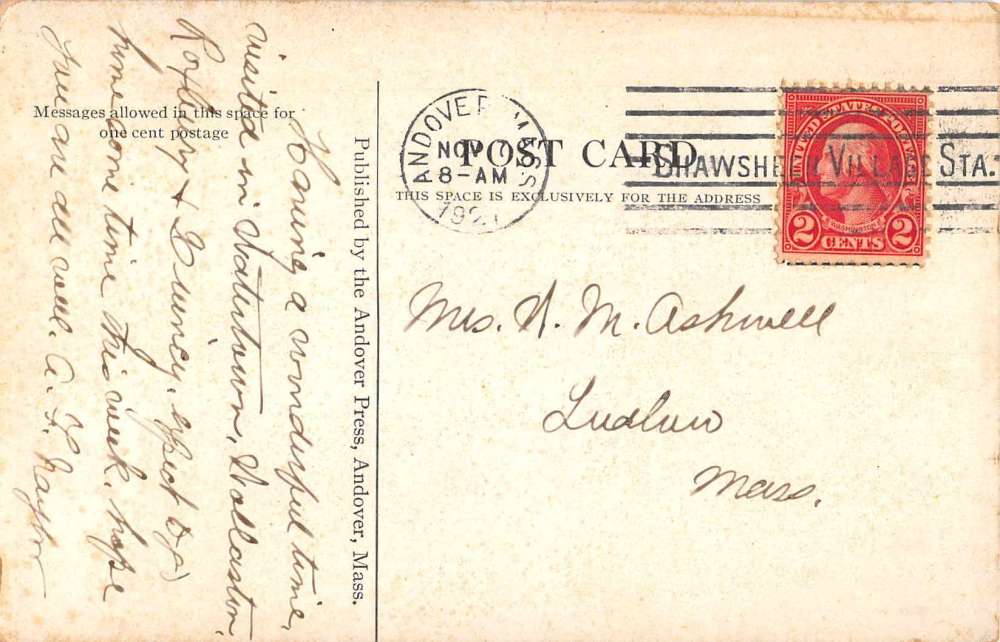 Messages allowed in this space for
one cent postage
Having a wonderful time,
visited in Watertown, Wollaston,
Roxbury & Quincy. Expect to go
home some time this week. hope
you are all well. A. F. Naylor
Published by the Andover Press, Andover, Mass.
ANDOVER MASS
NOV
8-AM
192
POST CARD
THIS SPACE IS EXCLUSIVELY FOR THE ADDRESS
SHAWSHEEN VILLAGE STA.
UNITED STATES POSTAGE
WASHINGTON
2 CENTS 2
Mrs. M. Ashwell
Ludlow
Mass.